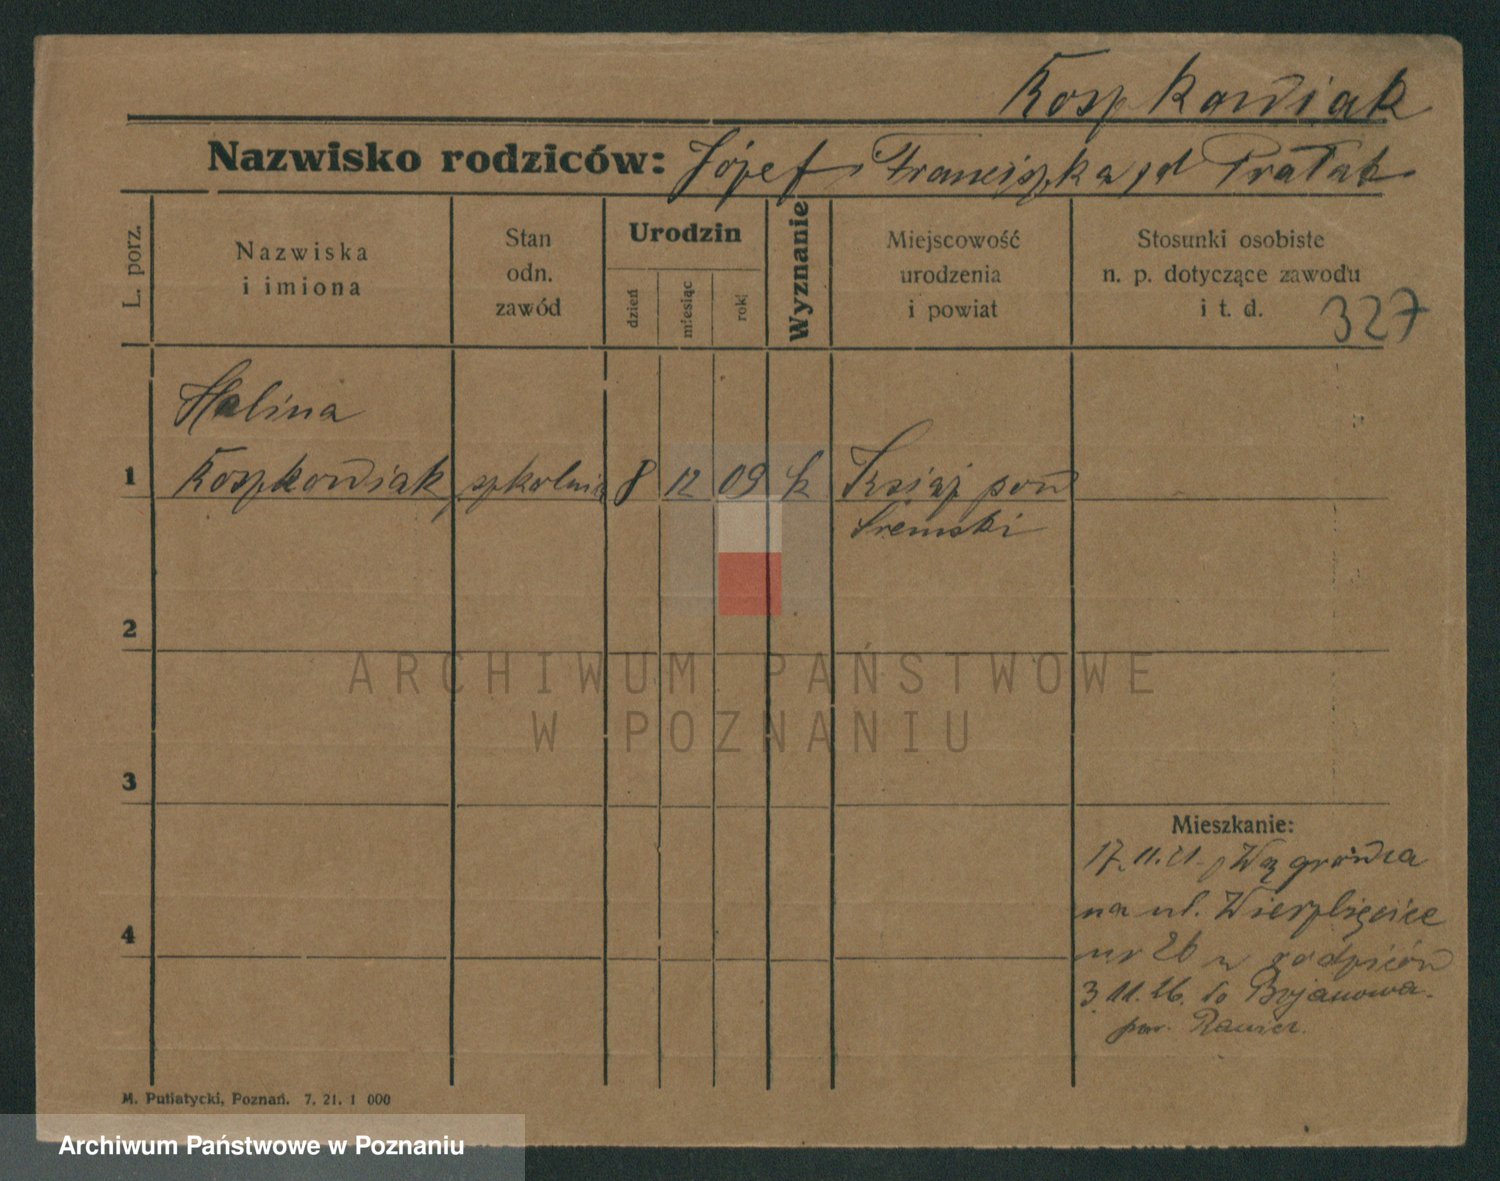 Koszkowiak
Nazwisko rodziców: Józef i Franciszka zd Prałat
L. porz.
Nazwiska
i imiona
Stan
odn.
zawód
Urodzin
dzień
miesiąc
rok
Wyznanie
Miejscowość
urodzenia
i powiat
Stosunki osobiste
n. p. dotyczące zawodu
i t. d.
327
Halina
1 Koszkowiak szkolna 8 12 09 k Książ pow
Śremski
2
3
4
Mieszkanie:
17.11.21 z Wągrówca
na ul. Wierzbięcice
nr 26 u rodziców
3.11.26. do Bojanowa.
pow. Rawicz.
M. Putiatycki, Poznań. 7. 21. 1 000
ARCHIWUM PAŃSTWOWE
W POZNANIU
Archiwum Państwowe w Poznaniu